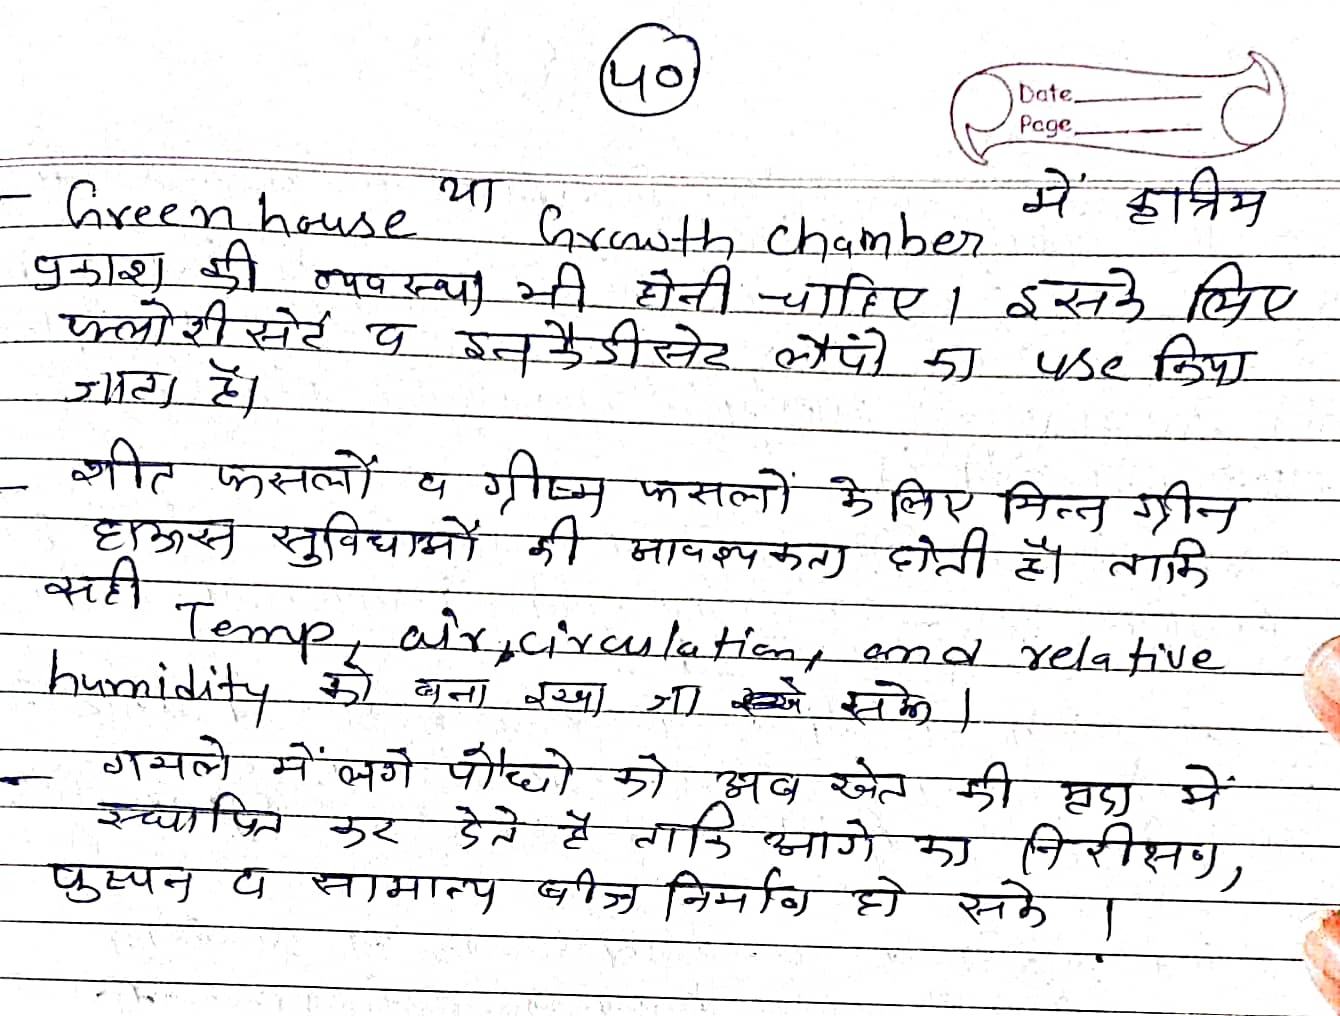 40
Date
Page
- Greenhouse या Growth chamber में कृत्रिम
प्रकाश की व्यवस्था भी होनी चाहिए। इसके लिए
फ्लोरीसेंट व इनकैंडीसेंट लैंपों का use किया
जाता है।
- शीत फसलों व ग्रीष्म फसलों के लिए भिन्न ग्रीन
हाऊस सुविधाओं की आवश्यकता होती है। ताकि
सही Temp, air, circulation, and relative
humidity को बना रखा जा सके।
- गमले में लगे पौधों को अब खेत की मृदा में
स्थापित कर देते है ताकि आगे का निरीक्षण,
पुष्पन व सामान्य बीज निर्माण हो सके।